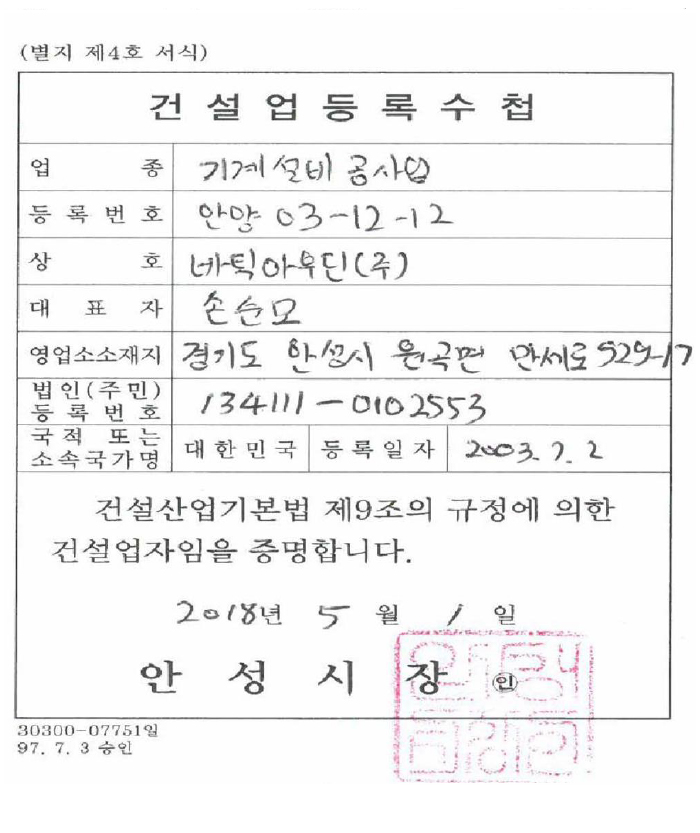 (별지 제4호 서식)
건설업등록수첩
업 종 기계설비공사업
등록번호 안양 03-12-12
상 호 네틱아우딘(주)
대 표 자 손순모
영업소소재지 경기도 안성시 원곡면 만세로 929-17
법인(주민) 등록번호 134111-0102553
국적 또는 소속국가명 대한민국 등록일자 2003. 7. 2
건설산업기본법 제9조의 규정에 의한
건설업자임을 증명합니다.
2018년 5월 1일
안성시장 ㊞
30300-07751일
97. 7. 3 승인